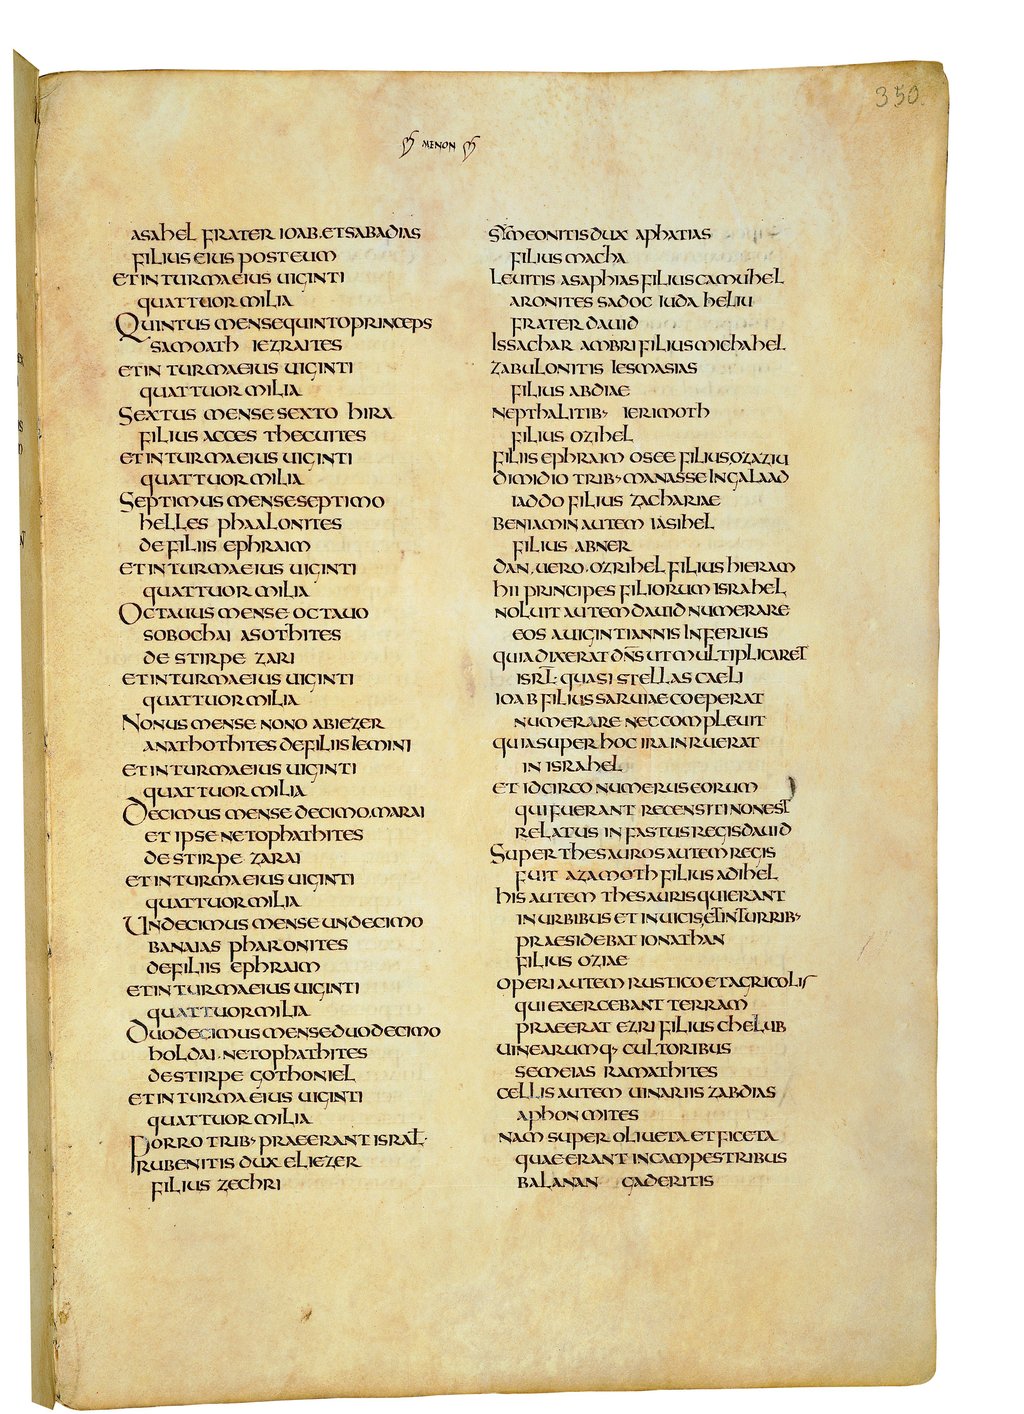 350.
MENON
asahel frater ioab. et sabadias
filius eius post eum
et in turma eius uiginti
quattuor milia
Quintus mense quinto princeps
samoath iezraites
et in turma eius uiginti
quattuor milia
Sextus mense sexto hira
filius acces thecuites
et in turma eius uiginti
quattuor milia
Septimus mense septimo
helles phaalonites
de filiis ephraim
et in turma eius uiginti
quattuor milia
Octauus mense octauo
sobochai asothites
de stirpe zari
et in turma eius uiginti
quattuor milia
Nonus mense nono abiezer
anathothites de filiis iemini
et in turma eius uiginti
quattuor milia
Decimus mense decimo. marai
et ipse netophathites
de stirpe zarai
et in turma eius uiginti
quattuor milia
Undecimus mense undecimo
banaias pharonites
de filiis ephraim
et in turma eius uiginti
quattuor milia
Duodecimus mense duodecimo
holdai. netophathites
de stirpe gothoniel
et in turma eius uiginti
quattuor milia
Porro trib; praeerant israƚ.
rubenitis dux eliezer
filius zechri
symeonitis dux aphatias
filius macha
Leuitis asaphias filius camuhel
aronites sadoc iuda heliu
frater dauid
Issachar ambri filius michahel
zabulonitis iesmasias
filius abdiae
Nepthalitib; ierimoth
filius ozihel
filiis ephraim osee filius ozaziu
dimidio trib; manasse in galaad
iaddo filius zachariae
Beniamin autem iasihel
filius abner
dan. uero. ozrihel filius hieram
hii principes filiorum israhel
noluit autem dauid numerare
eos a uiginti annis inferius
quia dixerat dn̄s ut multiplicaret
isrl̄. quasi stellas caeli
ioab filius saruiae coeperat
numerare nec compleuit
quia super hoc ira inruerat
in israhel
et idcirco numerus eorum
qui fuerant recensiti non est
relatus in fastus regis dauid
Super thesauros autem regis
fuit azamoth filius adihel
his autem thesauris qui erant
in urbibus et in uicis et in turrib;
praesidebat ionathan
filius oziae
operi autem rustico et agricolis
qui exercebant terram
praeerat ezri filius chelub
uinearumq; cultoribus
semeias ramathites
cellis autem uinariis zabdias
aphonmites
nam super oliueta et ficeta
quae erant in campestribus
balanan gaderitis